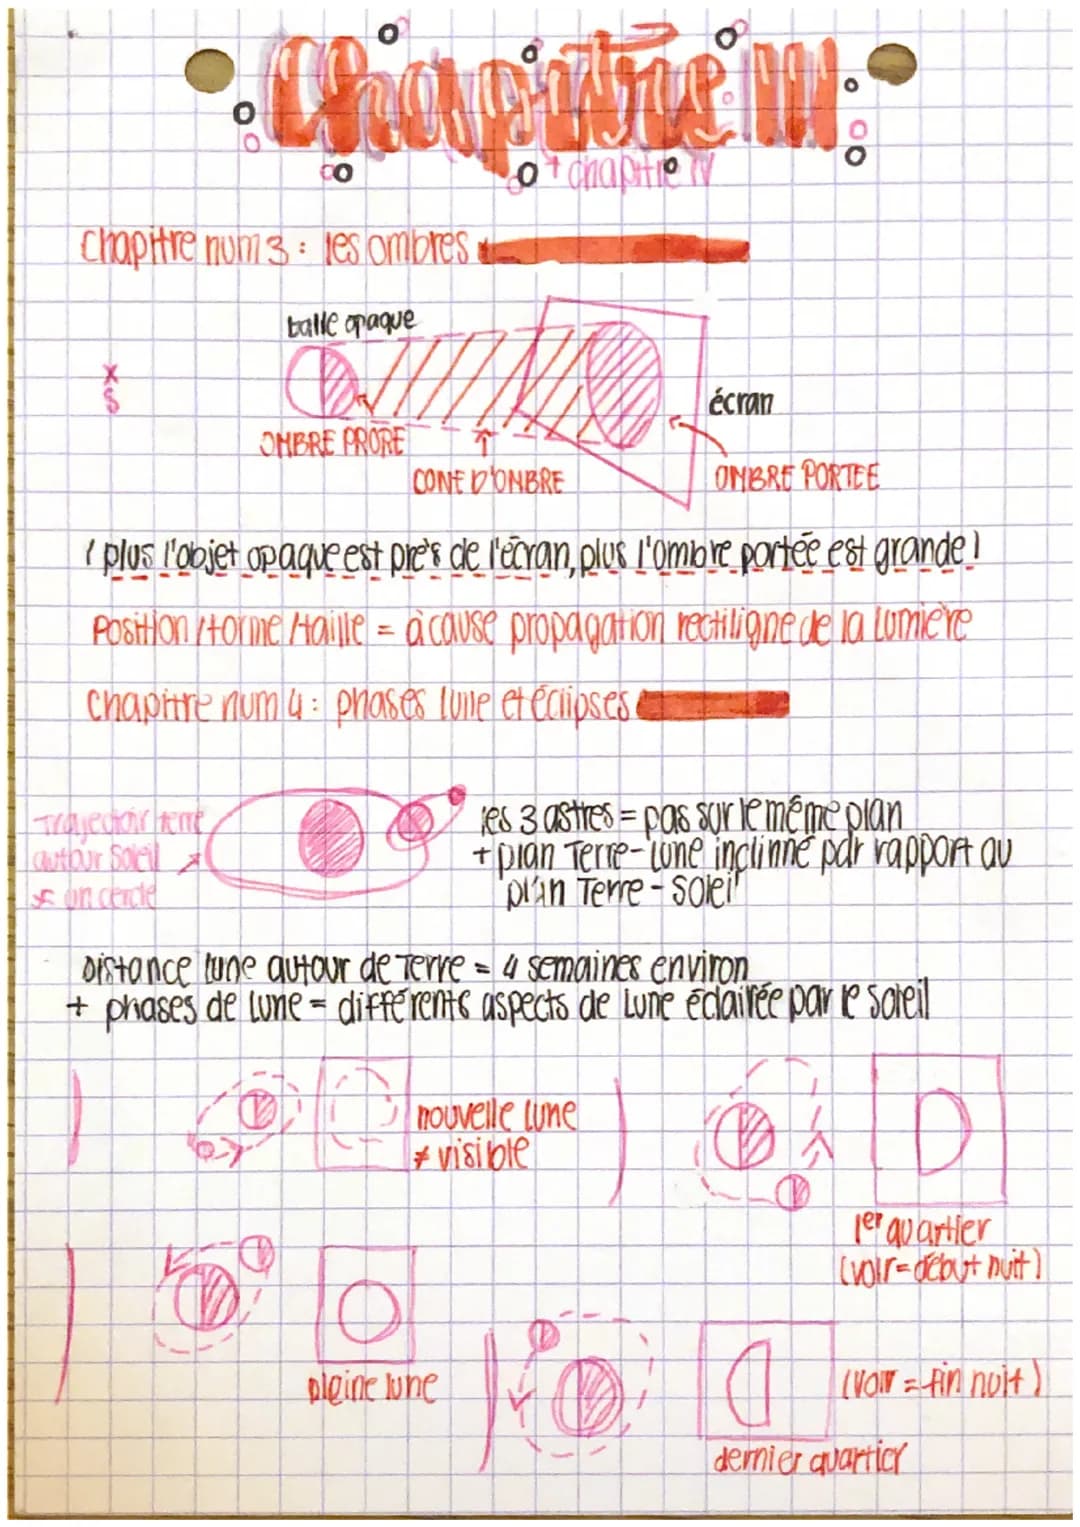 Chapitre III
+ chapitre IV
Chapitre num 3 : les ombres
balle opaque
x
S
écran
OMBRE PRORE
CONE D'OMBRE
OMBRE PORTEE
! plus l'objet opaque est près de l'écran, plus l'ombre portée est grande !
Position / forme / taille = à cause propagation rectiligne de la lumière
Chapitre num 4 : phases lune et éclipses
Trajectoir terre
autour Soleil
≠ un cercle
les 3 astres = pas sur le même plan
+ plan Terre-lune inclinné par rapport au
plan Terre - Soleil
Distance lune autour de Terre = 4 semaines environ
+ phases de lune = différents aspects de Lune éclairée par le soleil
nouvelle lune
≠ visible
1er quartier
(voir = début nuit)
pleine lune
(voir = fin nuit)
dernier quartier